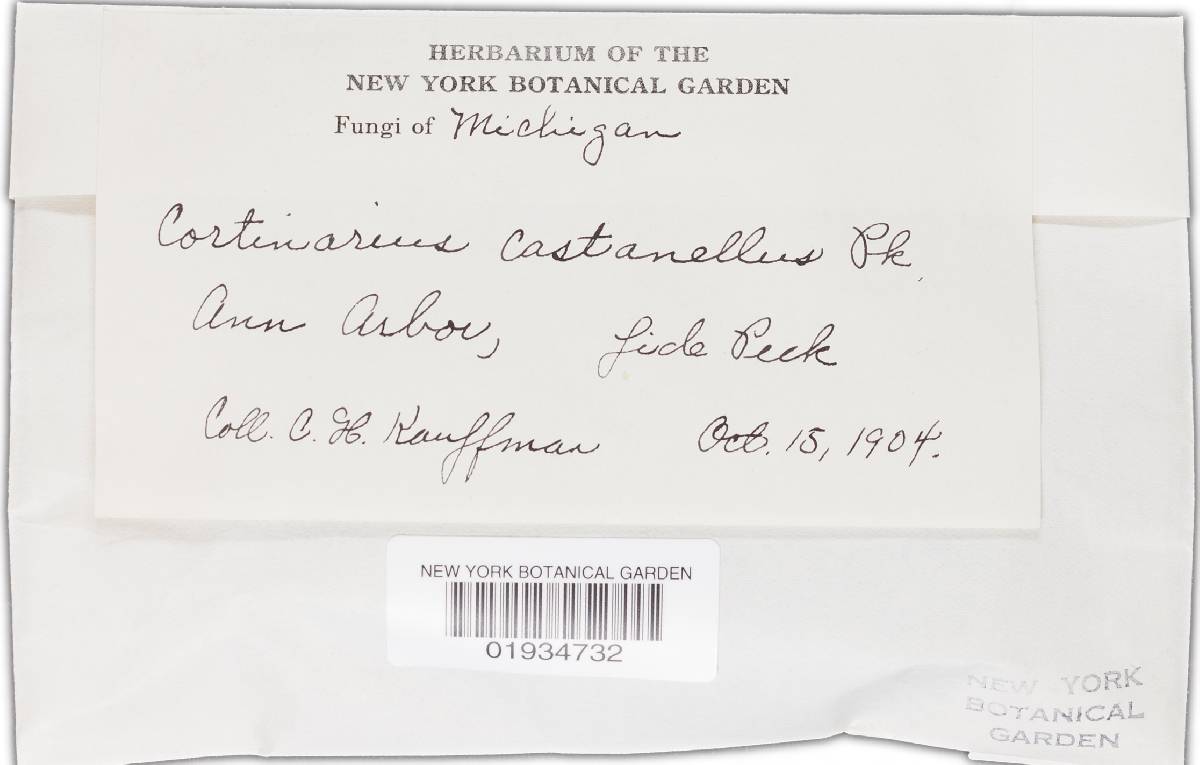 HERBARIUM OF THE
NEW YORK BOTANICAL GARDEN
Fungi of Michigan
Cortinarius castanellus Pk.
Ann Arbor, fide Peck
Coll. C. H. Kauffman Oct. 15, 1904.
NEW YORK BOTANICAL GARDEN
01934732
NEW YORK
BOTANICAL
GARDEN